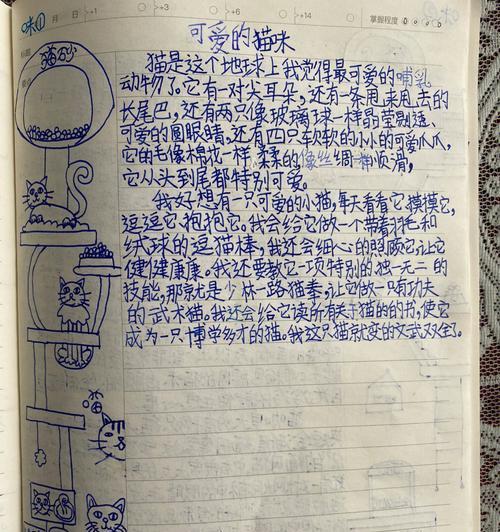 咪① 月 日 +1 +3 +6 +14 掌握程度
标题
可爱的猫咪
猫砂
猫是这个地球上我觉得最可爱的哺乳
动物了。它有一对尖耳朵,还有一条甩来甩去的
长尾巴,还有两只像玻璃球一样晶莹剔透
可爱的圆眼睛,还有四只软软的小小的可爱爪爪,
它的毛像棉花一样柔柔的像丝绸一样顺滑,
它从头到尾都特别可爱。
我好想有一只可爱的小猫,每天看看它,摸摸它,
逗逗它,抱抱它。我会给它做一个带着羽毛和
绒球的逗猫棒,我还会细心的照顾它,让它
健健康康。我还要教它一项特别的独一无二的
技能,那就是少林一路猫拳,让它做一只有功夫
的武术猫。我还会给它读所有关于猫的的书,使它
成为一只博学多才的猫。我这只猫就变的文武双全了。